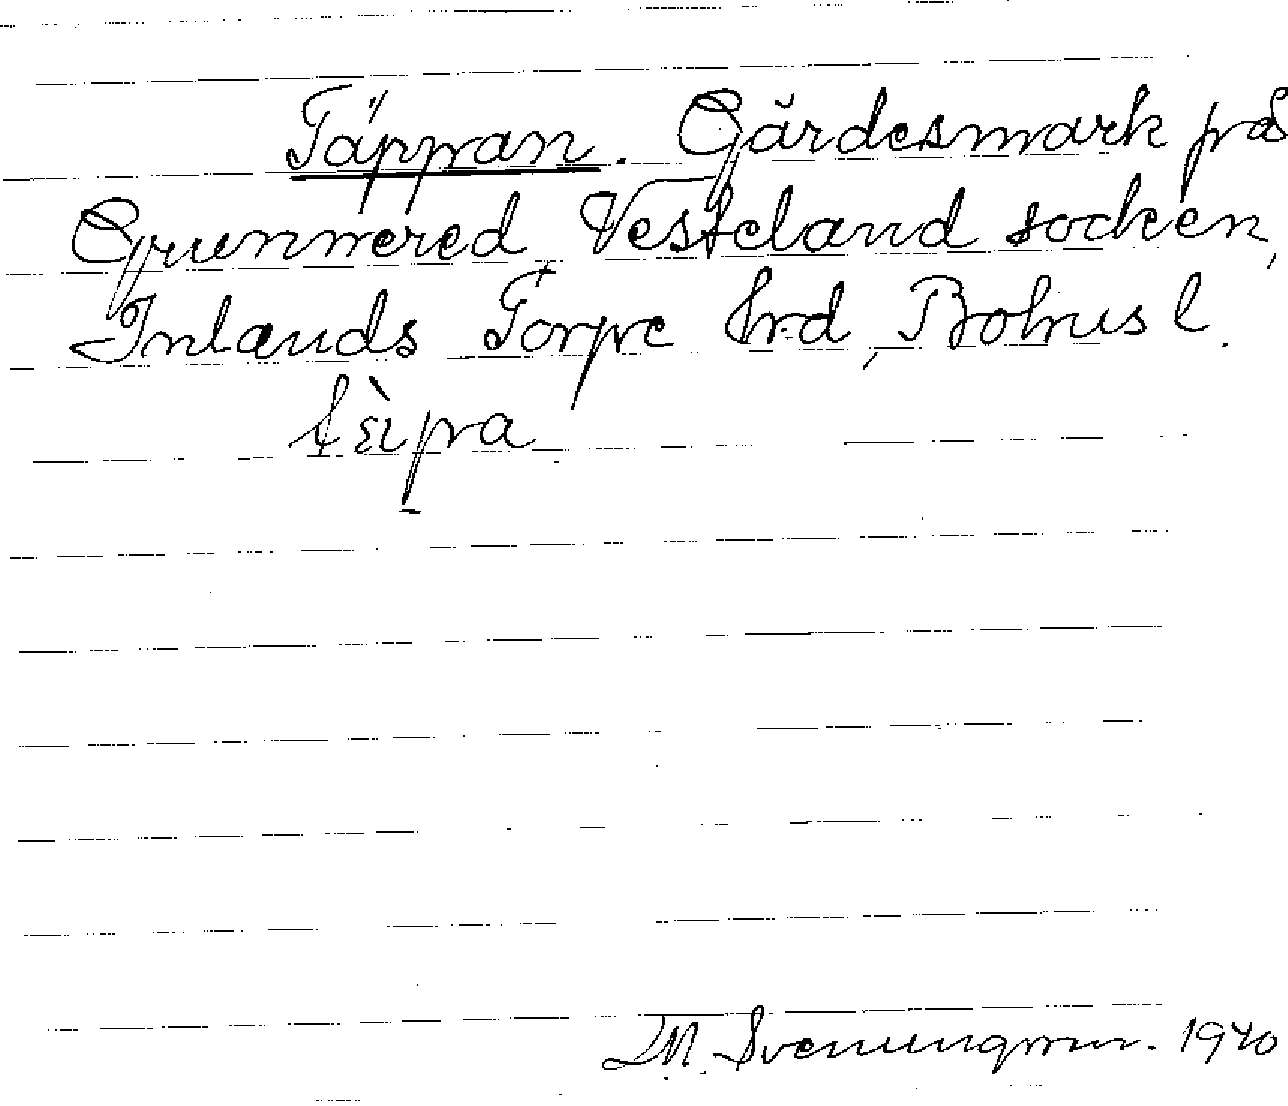 Täppan. Gärdesmark på
Grunnered, Vesteland socken,
Inlands Torpe hrd, Bohusl.
M. Svenungsson. 1940